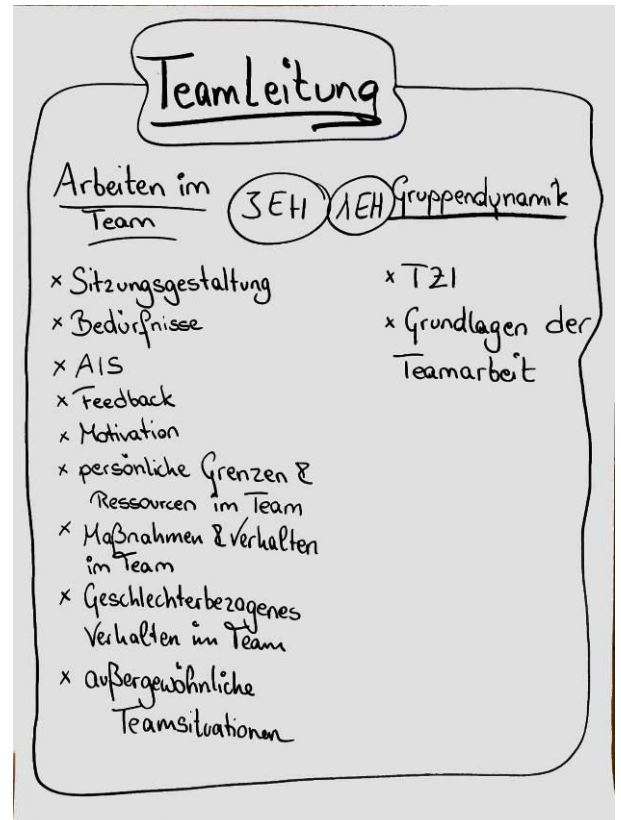 TeamLeitung
Arbeiten im
Team
3 EH
1EH
Gruppendynamik
x Sitzungsgestaltung
x Bedürfnisse
x AIS
x Feedback
x Motivation
x persönliche Grenzen &
Ressourcen im Team
x Maßnahmen & Verhalten
im Team
x Geschlechterbezogenes
Verhalten im Team
x außergewöhnliche
Teamsituationen
x TZI
x Grundlagen der
Teamarbeit